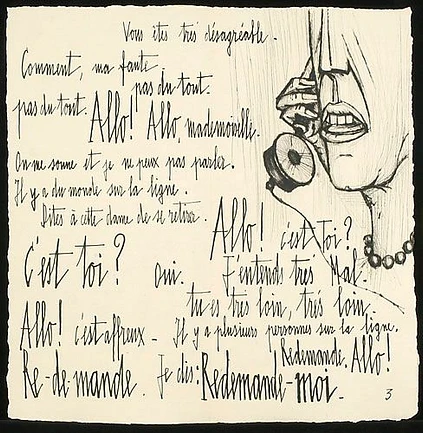 Vous êtes très désagréable.
Comment, ma faute.
pas du tout.
pas du tout. Allo! Allo, mademoiselle.
On me sonne et je ne peux pas parler.
Il y a du monde sur la ligne.
Dites à cette dame de se retirer.
Allo! c'est toi?
C'est toi? oui. J'entends très mal.
tu es très loin, très loin.
Allo! c'est affreux - Il y a plusieurs personnes sur la ligne.
Redemande. Allo!
Re-de-mande. Je dis: Redemande-moi.
3